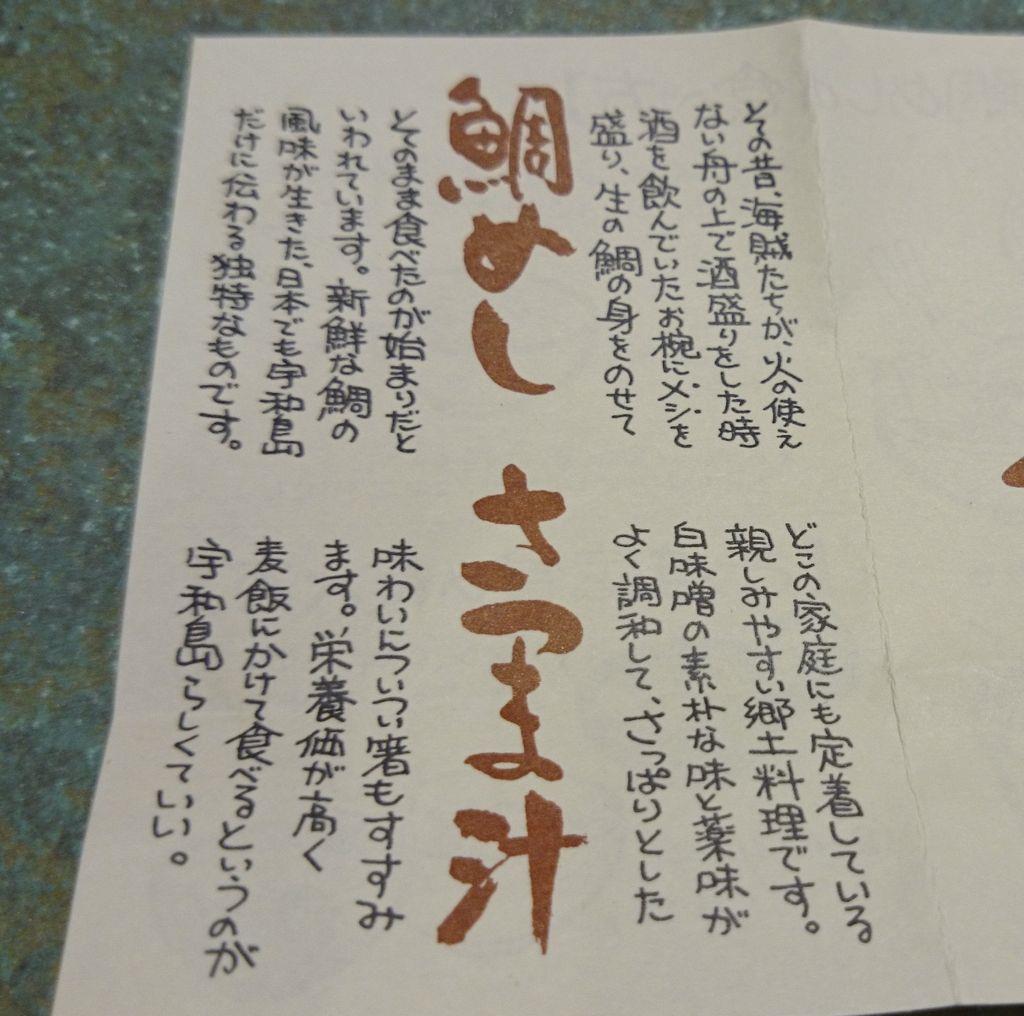 鯛めし
その昔、海賊たちが、火の使え
ない舟の上で酒盛りをした時
酒を飲んでいたお椀にメシを
盛り、生の鯛の身をのせて
とてのまま食べたのが始まりだと
いわれています。新鮮な鯛の
風味が生きた、日本でも宇和島
だけに伝わる独特なものです。
さつま汁
どこの家庭にも定着している
親しみやすい郷土料理です。
白味噌の素朴な味と薬味が
よく調和して、さっぱりとした
味わいについつい箸もすすみ
ます。栄養価が高く
麦飯にかけて食べるというのが
宇和島らしくていい。